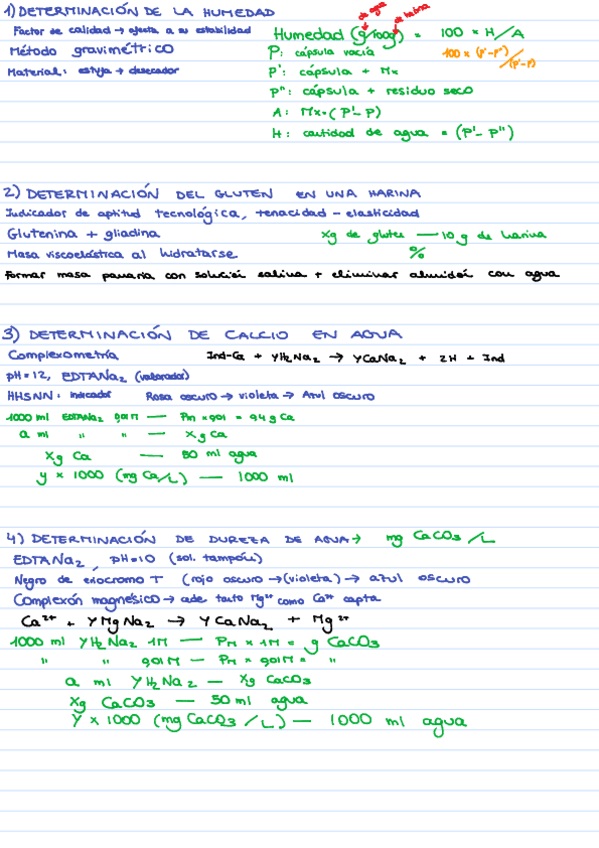 1) DETERMINACIÓN DE LA HUMEDAD
Factor de calidad → afecta a su estabilidad
Método gravimétrico
Material: estufa + desecador
de agua
de harina
Humedad (g/100g) = 100 × H/A
100 × (P'-P'')/(P'-P)
P: cápsula vacía
P': cápsula + Mx
P'': cápsula + residuo seco
A: Mx. (P'-P)
H: cantidad de agua = (P'-P'')
2) DETERMINACIÓN DEL GLUTEN EN UNA HARINA
Indicador de aptitud tecnológica, tenacidad - elasticidad
Glutenina + gliadina
Xg de gluten — 10 g de harina
Masa viscoelástica al hidratarse
%
Formar masa panaria con solución salina + eliminar almidón con agua
3) DETERMINACIÓN DE CALCIO EN AGUA
Complexometría
Ind-Ca + YH2Na2 → YCaNa2 + 2H + Ind
pH=12, EDTANa2 (valorador)
HHSNN: indicador Rosa oscuro → violeta → Azul oscuro
1000 ml EDTANa2 0,01M — Pm × 0,01 = 0,4 g Ca
a ml " " — Xg Ca
Xg Ca — 50 ml agua
y × 1000 (mg Ca/L) — 1000 ml
4) DETERMINACIÓN DE DUREZA DE AGUA → mg CaCO3/L
EDTANa2, pH=10 (sol. tampón)
Negro de eriocromo T (rojo oscuro → (violeta) → azul oscuro
Complexón magnésico → cede tanto Mg2+ como Ca2+ capta
Ca2+ + YMgNa2 → YCaNa2 + Mg2+
1000 ml YH2Na2 1M — PM × 1M = g CaCO3
" " 0,01M — PM × 0,01M = "
a ml YH2Na2 — Xg CaCO3
Xg CaCO3 — 50 ml agua
Y × 1000 (mg CaCO3/L) — 1000 ml agua